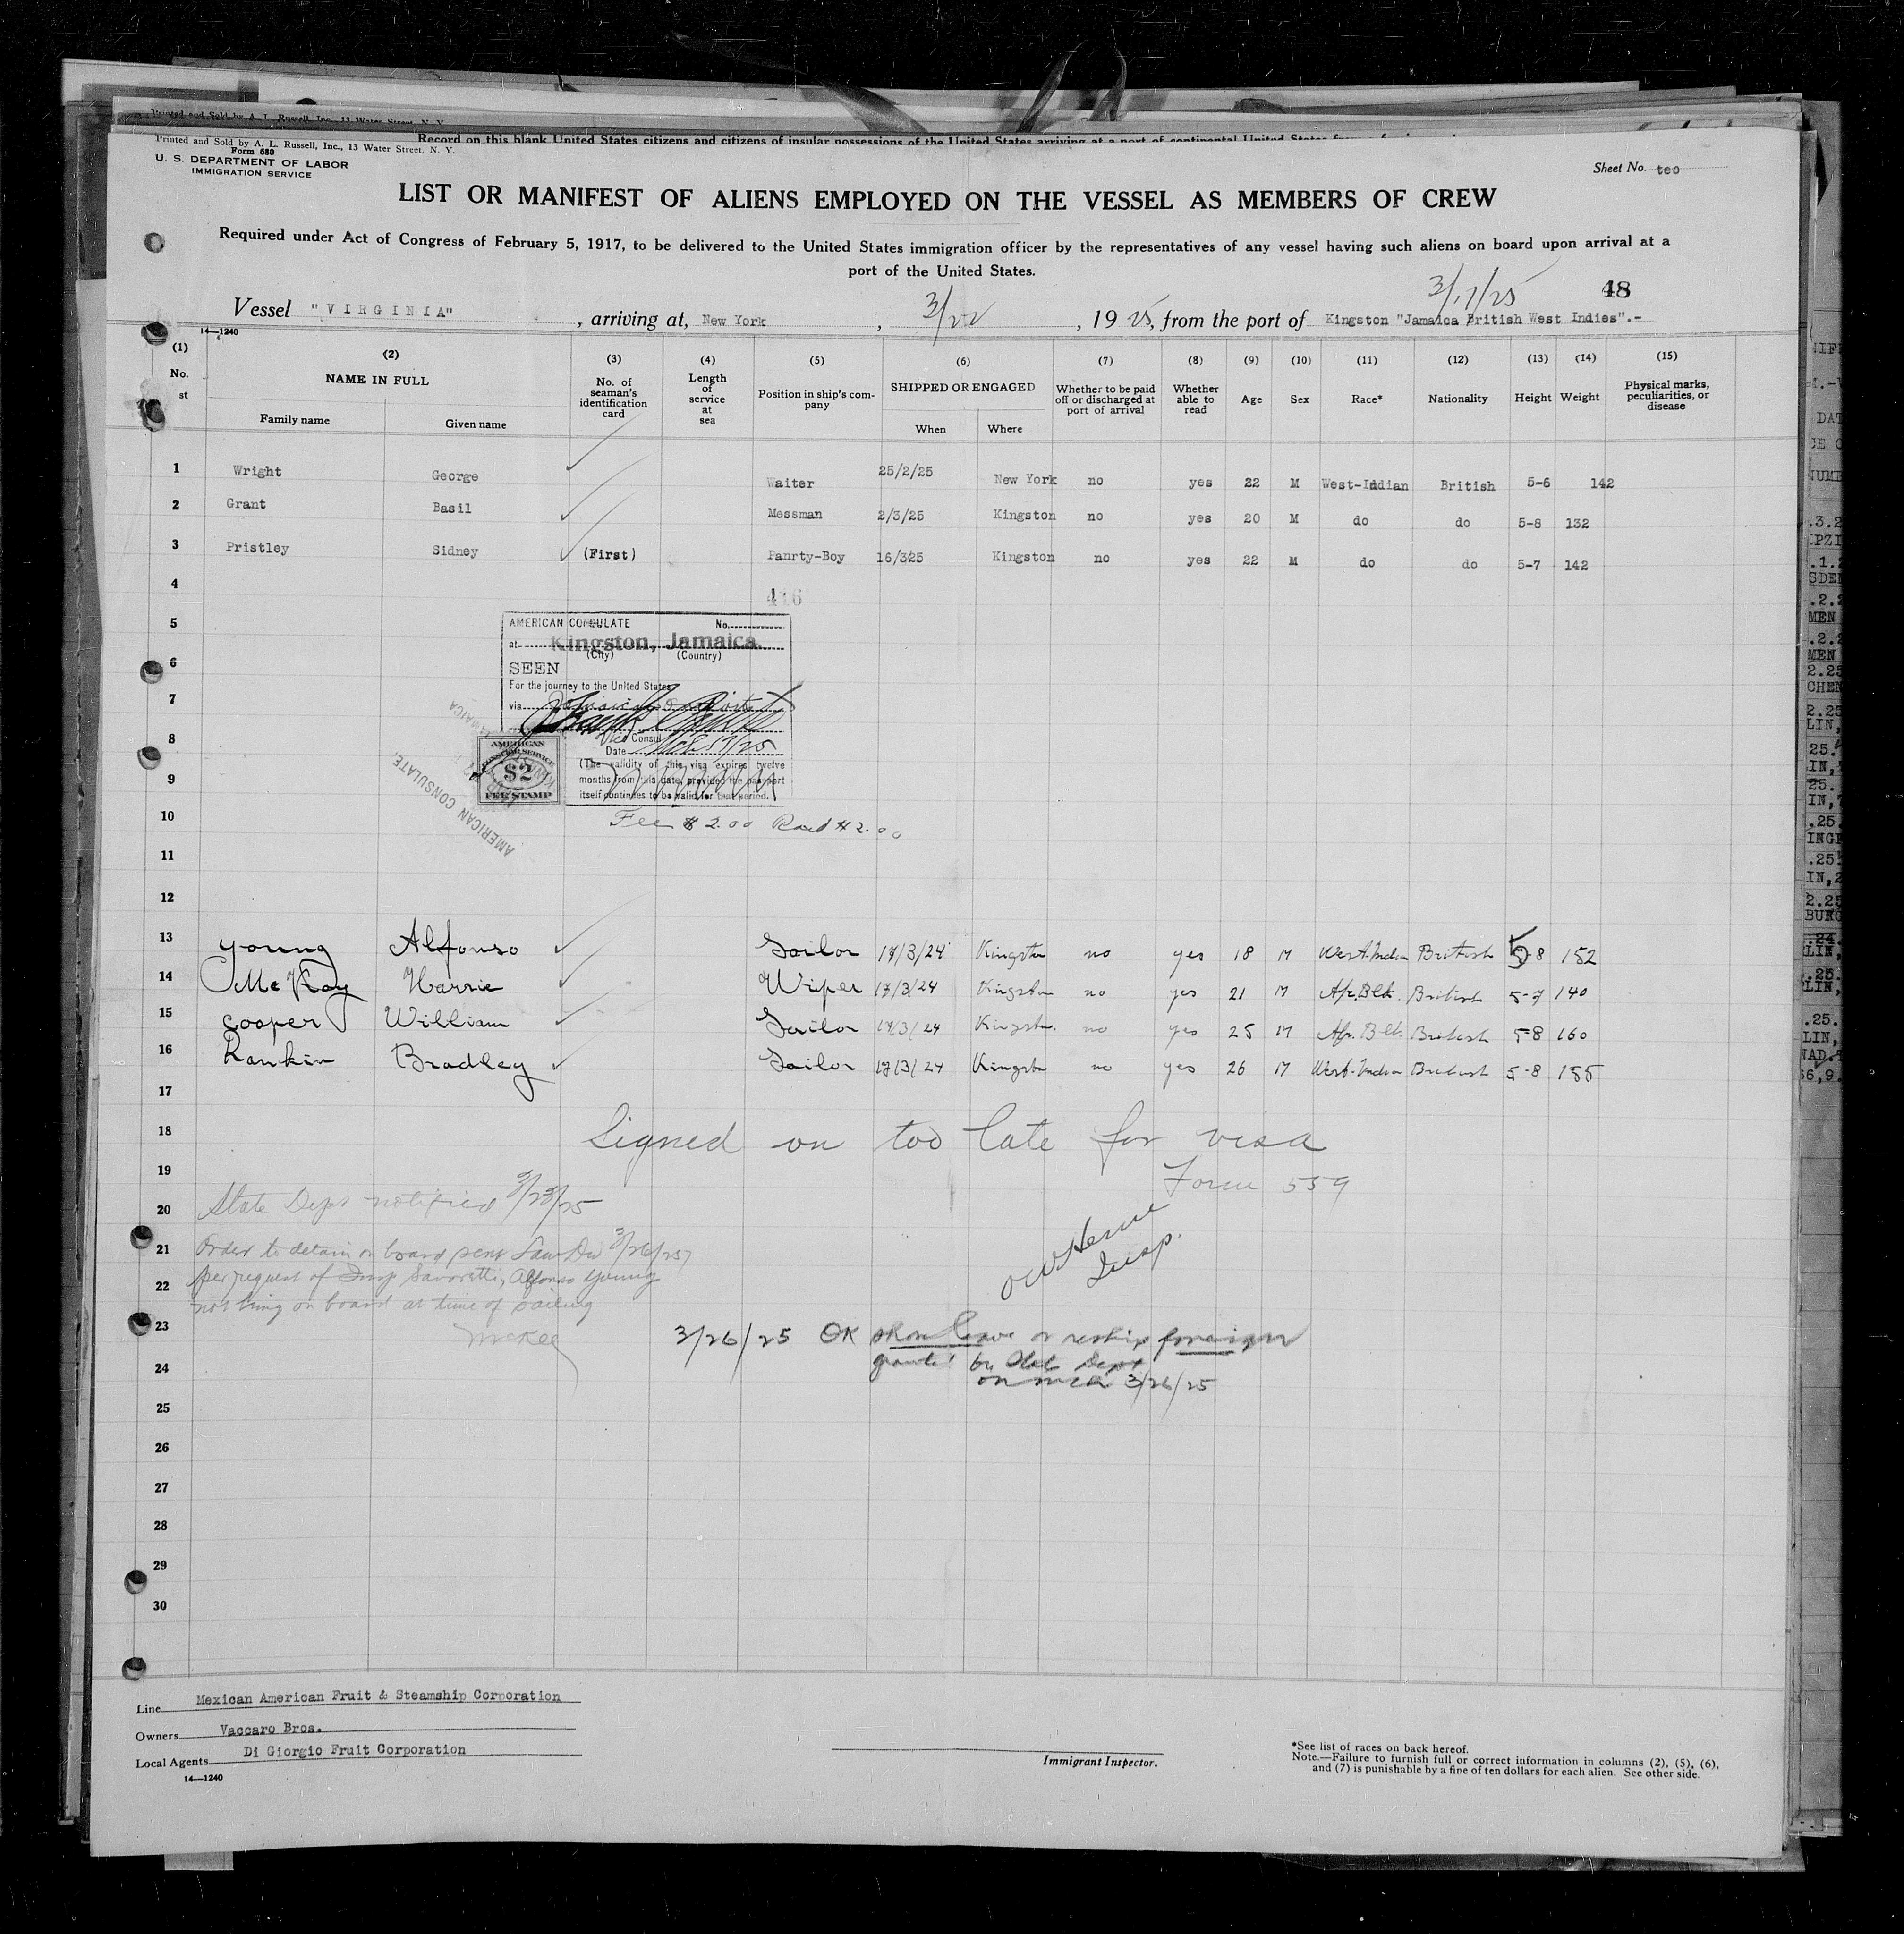 Printed and Sold by A. L. Russell, Inc., 13 Water Street, N. Y.
Record on this blank United States citizens and citizens of insular possessions of the United States arriving at a port of continental United States
Printed and Sold by A. L. Russell, Inc., 13 Water Street, N. Y.
Form 680
U. S. DEPARTMENT OF LABOR
IMMIGRATION SERVICE
Sheet No. teo
LIST OR MANIFEST OF ALIENS EMPLOYED ON THE VESSEL AS MEMBERS OF CREW
Required under Act of Congress of February 5, 1917, to be delivered to the United States immigration officer by the representatives of any vessel having such aliens on board upon arrival at a
port of the United States.
3/17/25 48
Vessel "VIRGINIA" , arriving at, New York , 3/22 , 1925, from the port of Kingston "Jamaica British West Indies".-
14—1240
(1) (2) (3) (4) (5) (6) (7) (8) (9) (10) (11) (12) (13) (14) (15)
No. st NAME IN FULL Family name Given name No. of seaman's identification card Length of service at sea Position in ship's company SHIPPED OR ENGAGED When Where Whether to be paid off or discharged at port of arrival Whether able to read Age Sex Race* Nationality Height Weight Physical marks, peculiarities, or disease
1 Wright George Waiter 25/2/25 New York no yes 22 M West-Indian British 5-6 142
2 Grant Basil Messman 2/3/25 Kingston no yes 20 M do do 5-8 132
3 Pristley Sidney (First) Panrty-Boy 16/325 Kingston no yes 22 M do do 5-7 142
4 416
5 AMERICAN CONSULATE No.
at Kingston, Jamaica.
(City) (Country)
6 SEEN
For the journey to the United States
7 via
8 Vice Consul
Date
AMERICAN CONSULAR SERVICE
$2
FEE STAMP
AMERICAN CONSULATE,
JAMAICA
9 (The validity of this visa expires twelve
months from this date, provided the passport
itself continues to be valid for that period.
10 Fee $2.00
11
12
13 Young Alfonso Sailor 17/3/24 Kingston no yes 18 M West-Indian British 5-8 152
14 McKay Harrie Wiper 17/3/24 Kingston no yes 21 M Afr. Blk. British 5-7 140
15 Cooper William Sailor 17/3/24 Kingston no yes 25 M Afr. Blk. British 5-8 160
16 Rankin Bradley Sailor 17/3/24 Kingston no yes 26 M West-Indian British 5-8 155
17
18 Signed on too late for visa
19 Form 559
20 State Dept notified 3/25/25
21 Order to detain on board sent Law Div 3/26/25
22 per request of Insp Savoretti, Alfonso Young
not being on board at time of sailing
Insp.
McKee
23 3/26/25 OK shore leave or reship foreign
24 granted by State Dept
3/26/25
25
26
27
28
29
30
Line Mexican American Fruit & Steamship Corporation
Owners Vaccaro Bros.
Local Agents Di Giorgio Fruit Corporation
14—1240
Immigrant Inspector.
*See list of races on back hereof.
Note.—Failure to furnish full or correct information in columns (2), (5), (6),
and (7) is punishable by a fine of ten dollars for each alien. See other side.